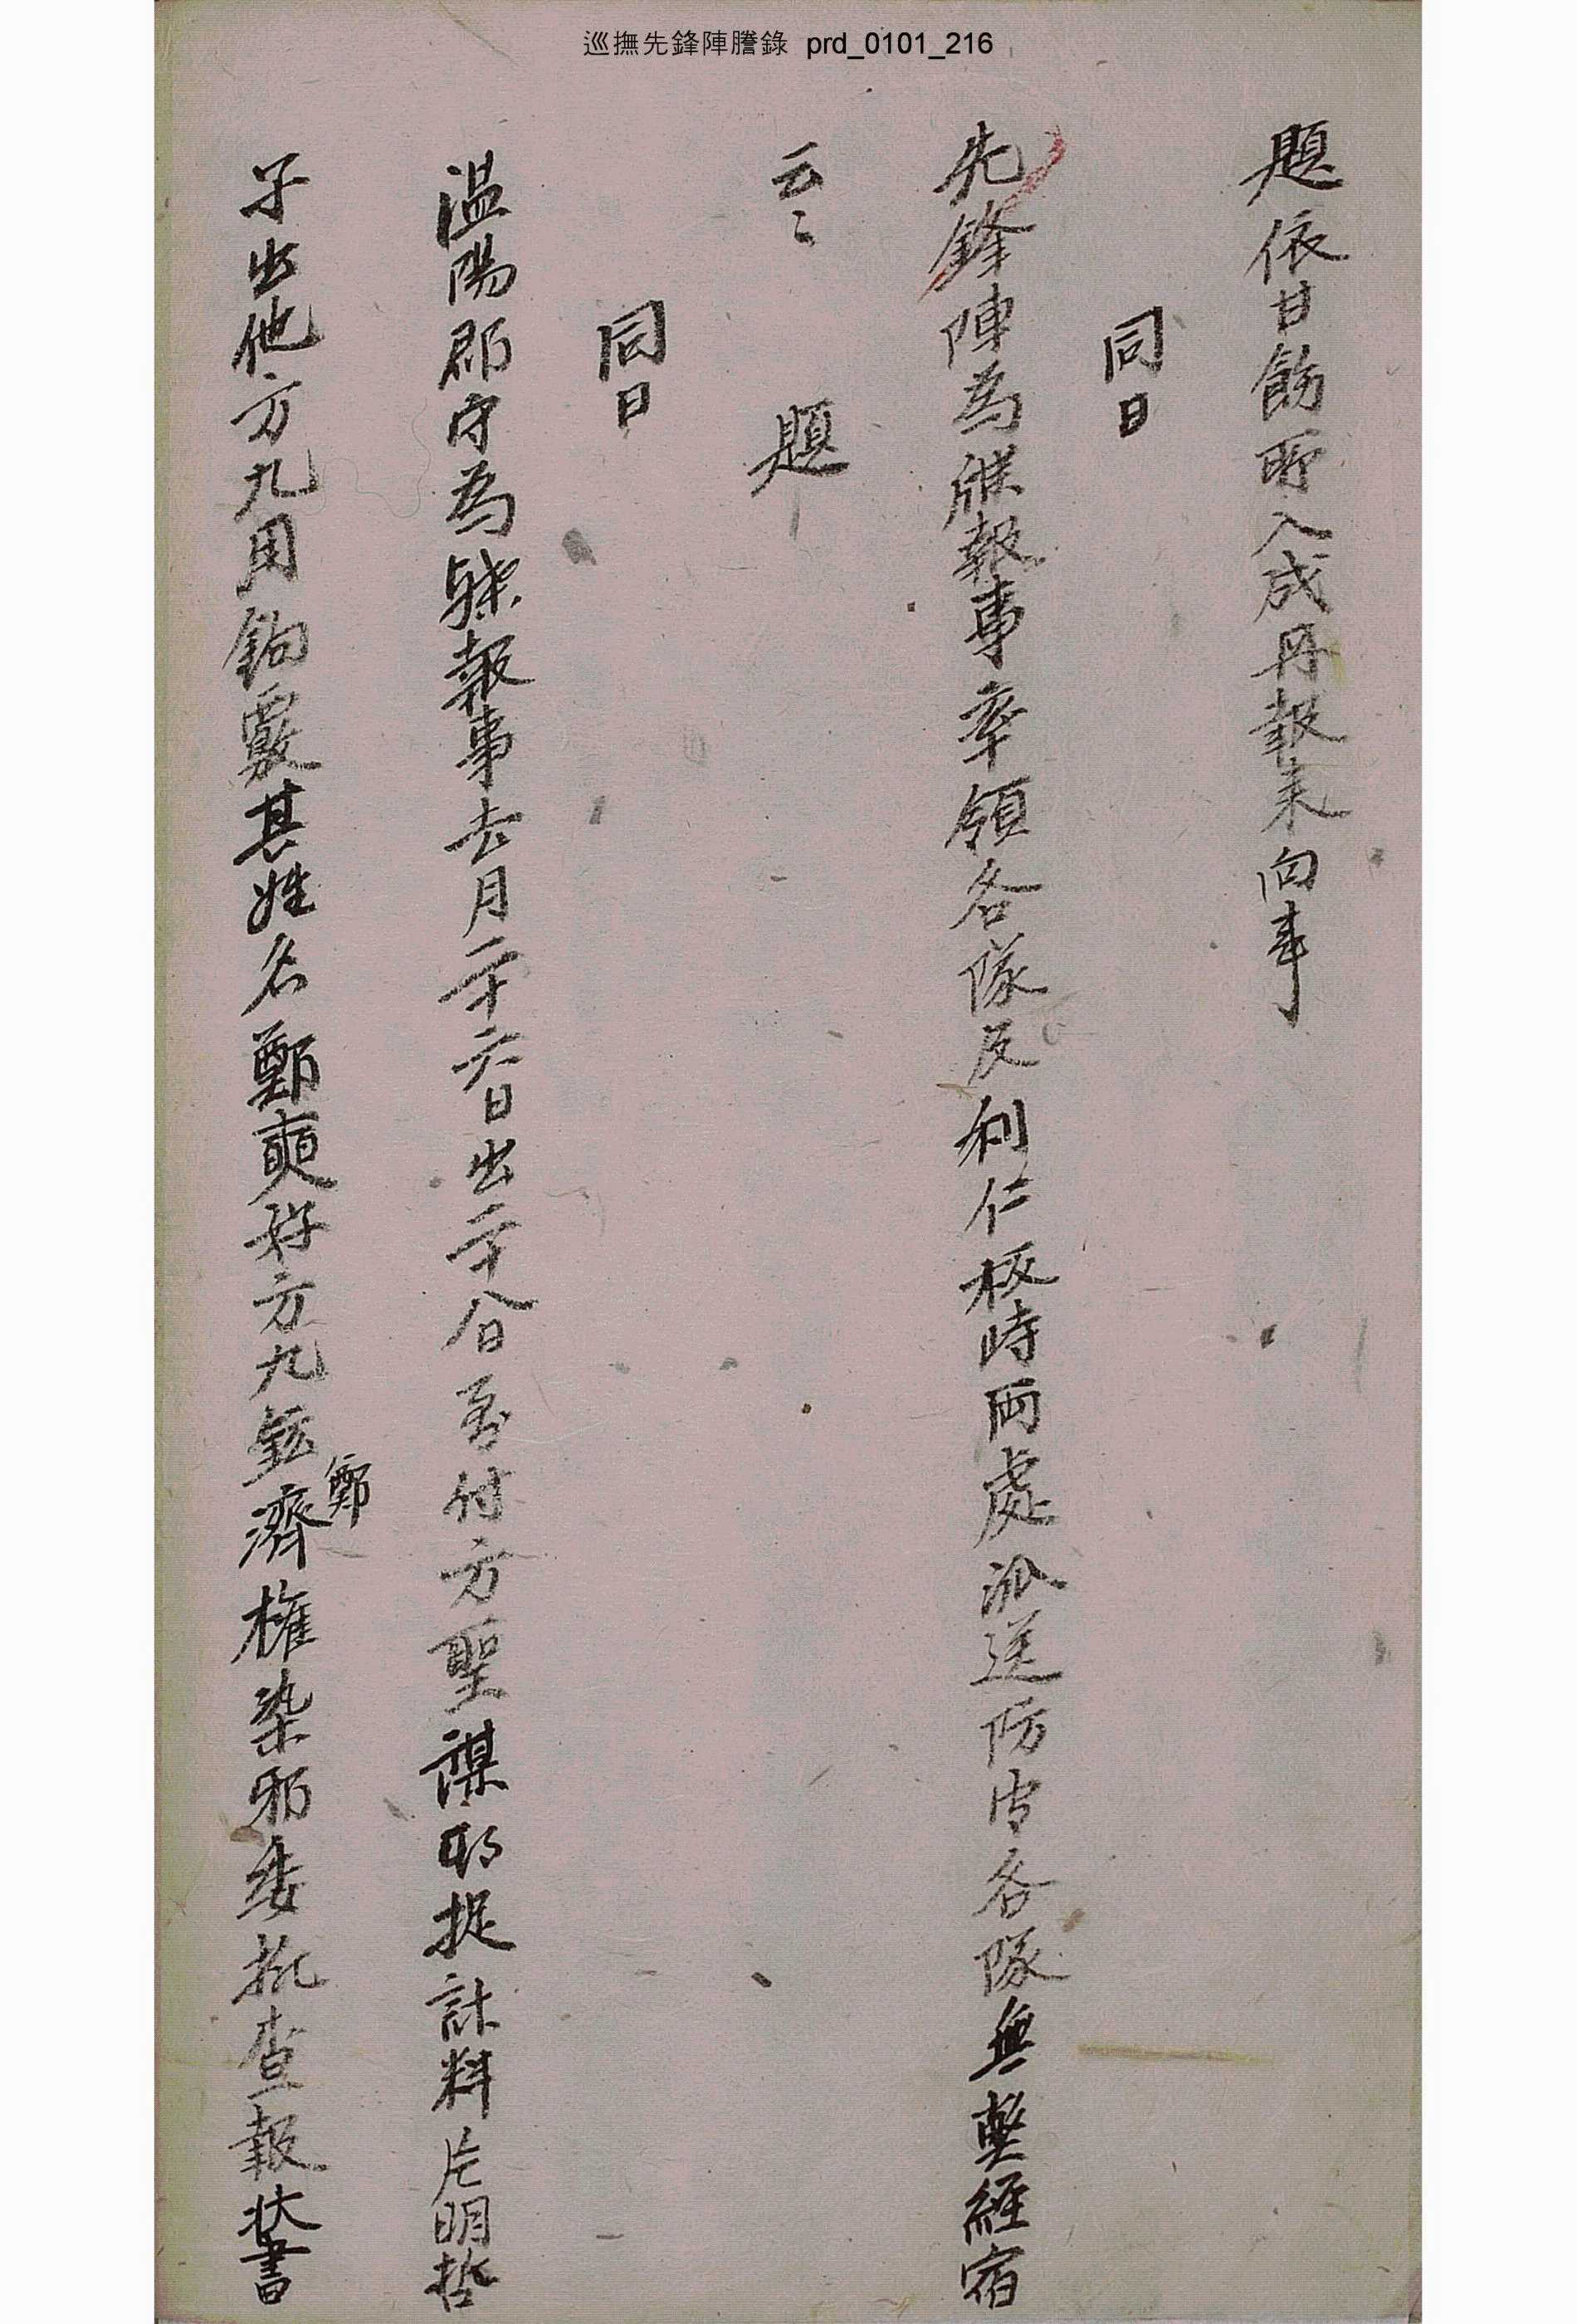 巡撫先鋒陣謄錄 prd_0101_216
題依甘飭所入成冊報來向事
同日
先鋒陣爲牒報事率領各隊反利仁板峙兩處派送防守各隊無弊經宿
云〻 題
同日
温陽郡守爲牒報事去月二十六日出二十八日到付方聖謀形捉計料片明哲
子出他方九用鉤覈其姓名鄭奭好方九鉉鄭濟權染邪委折查報狀書